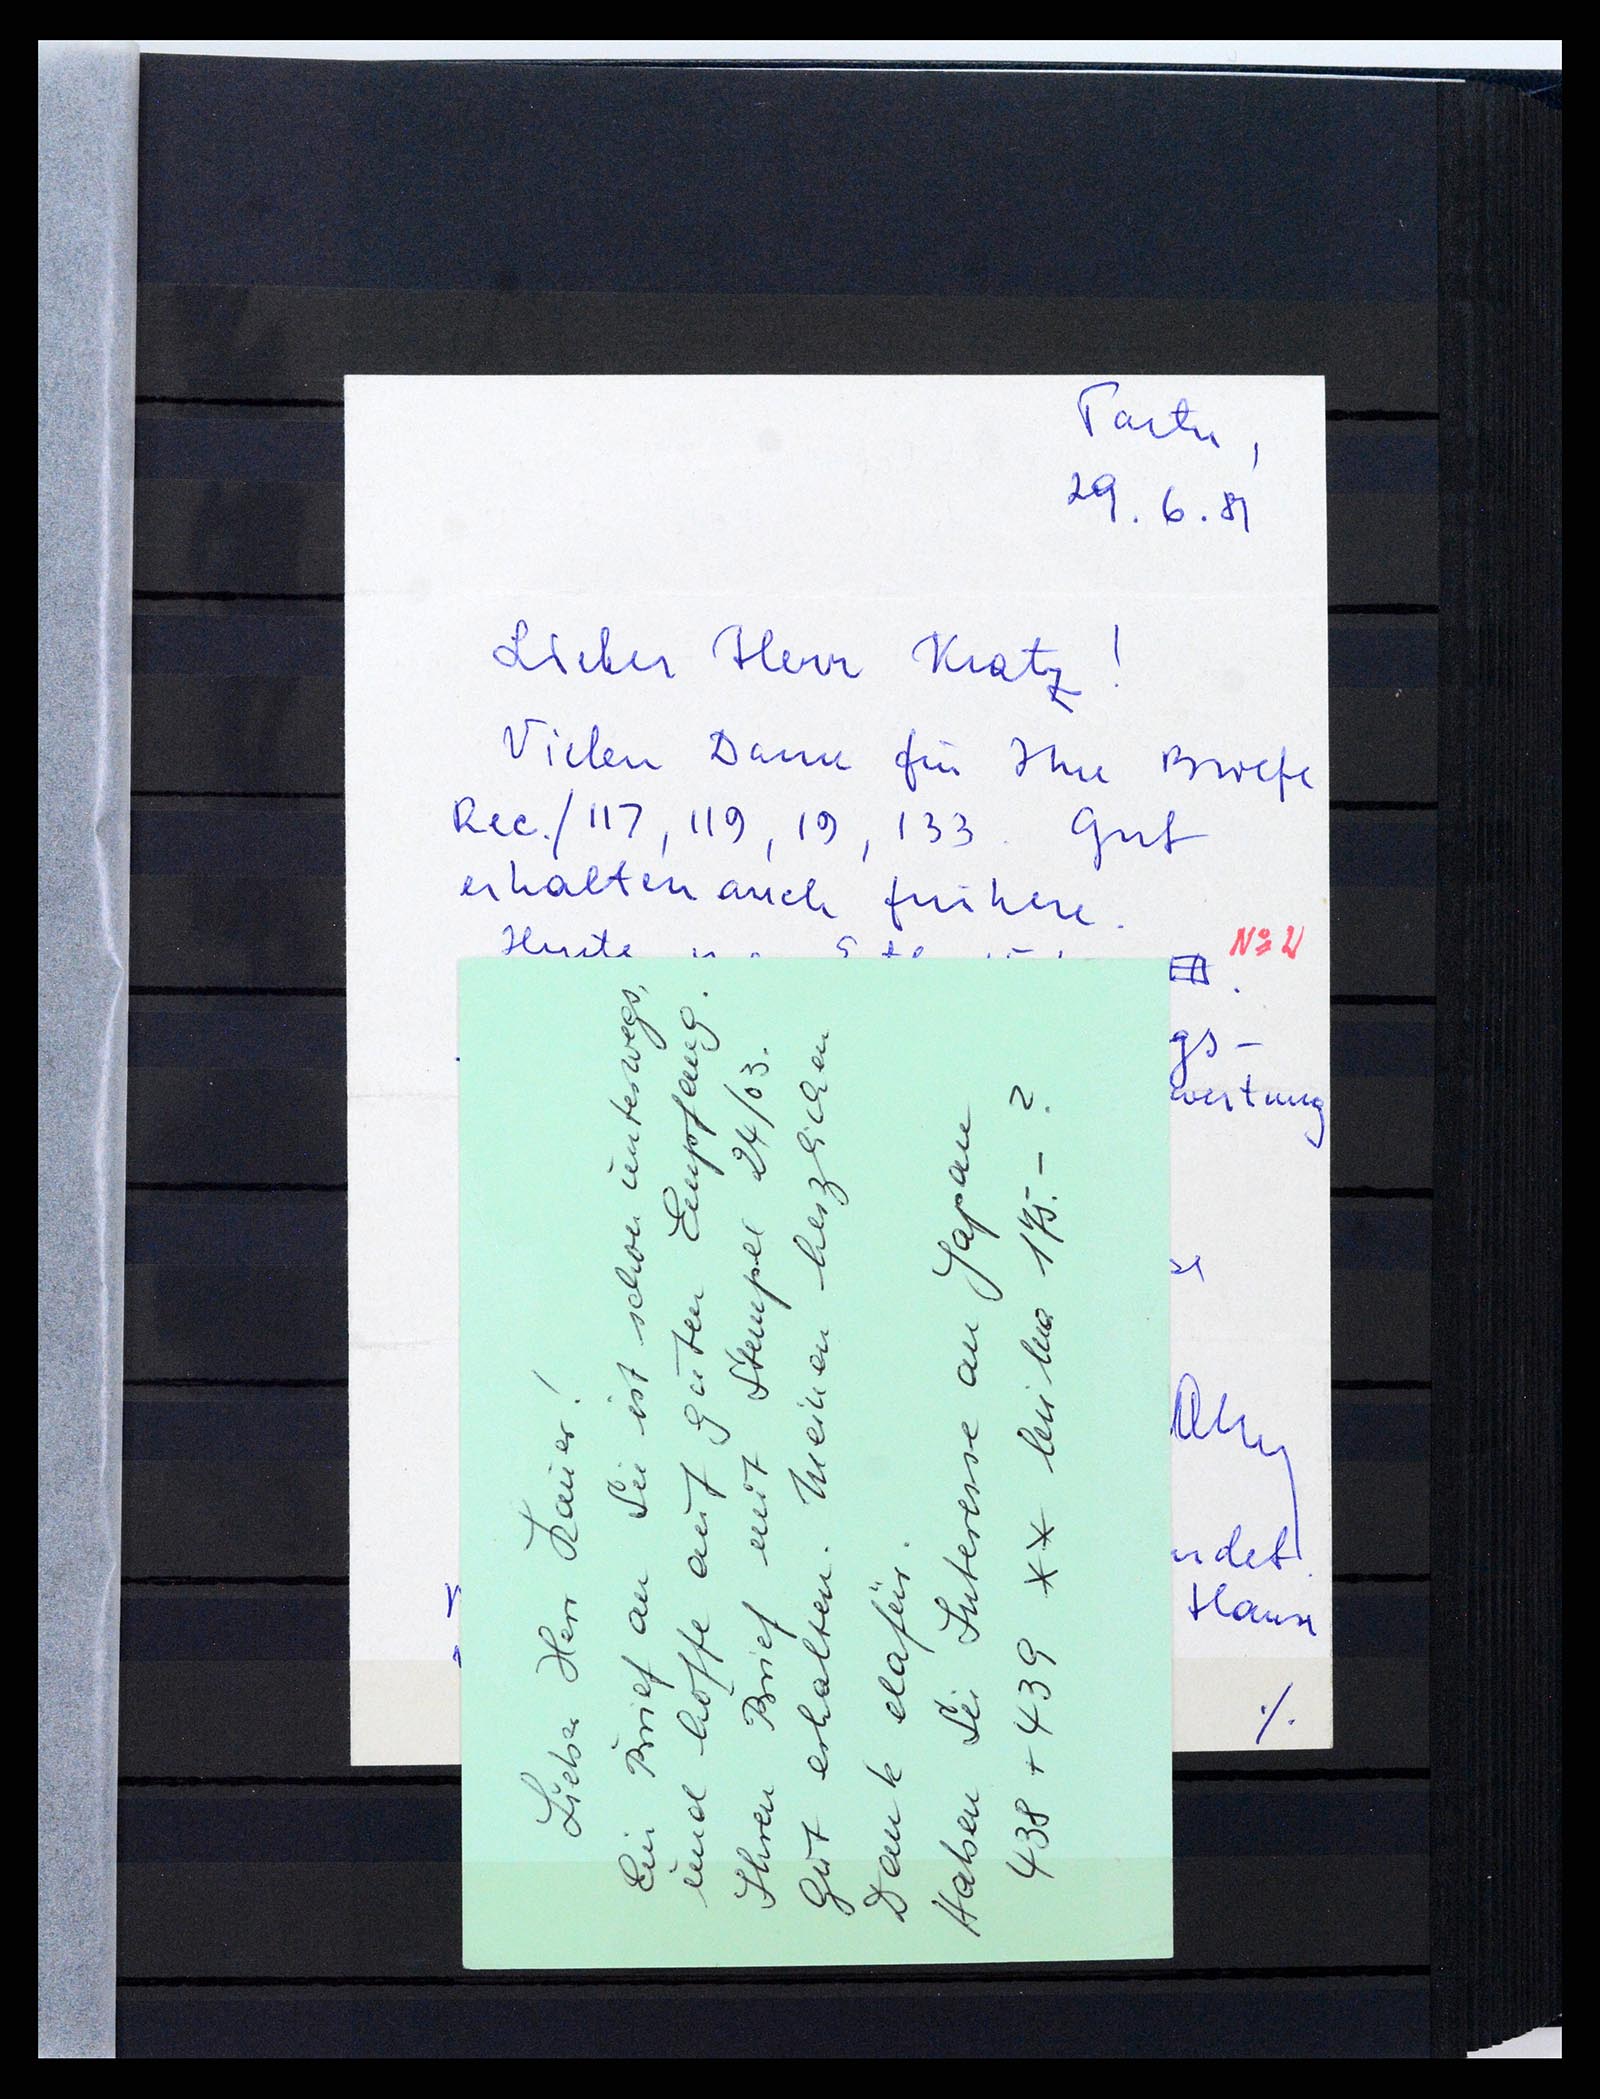 Tartu,
29.6.81
Lieber Herr Kratz!
Vielen Dank für Ihre Briefe
Rec./117, 119, 19, 133. Gut
erhalten auch frühere.
Heute
№ 21
gs-
wertung
ndet
Hause
./.
Lieber Herr Kauer!
Ein Brief an Sie ist schon unterwegs,
und hoffe auf guten Empfang.
Ihren Brief mit Stempel 24/03.
Gut erhalten. Meinen herzlichen
Dank dafür.
Haben Sie Interesse an Japan
438 + 439 ** 175.- ?